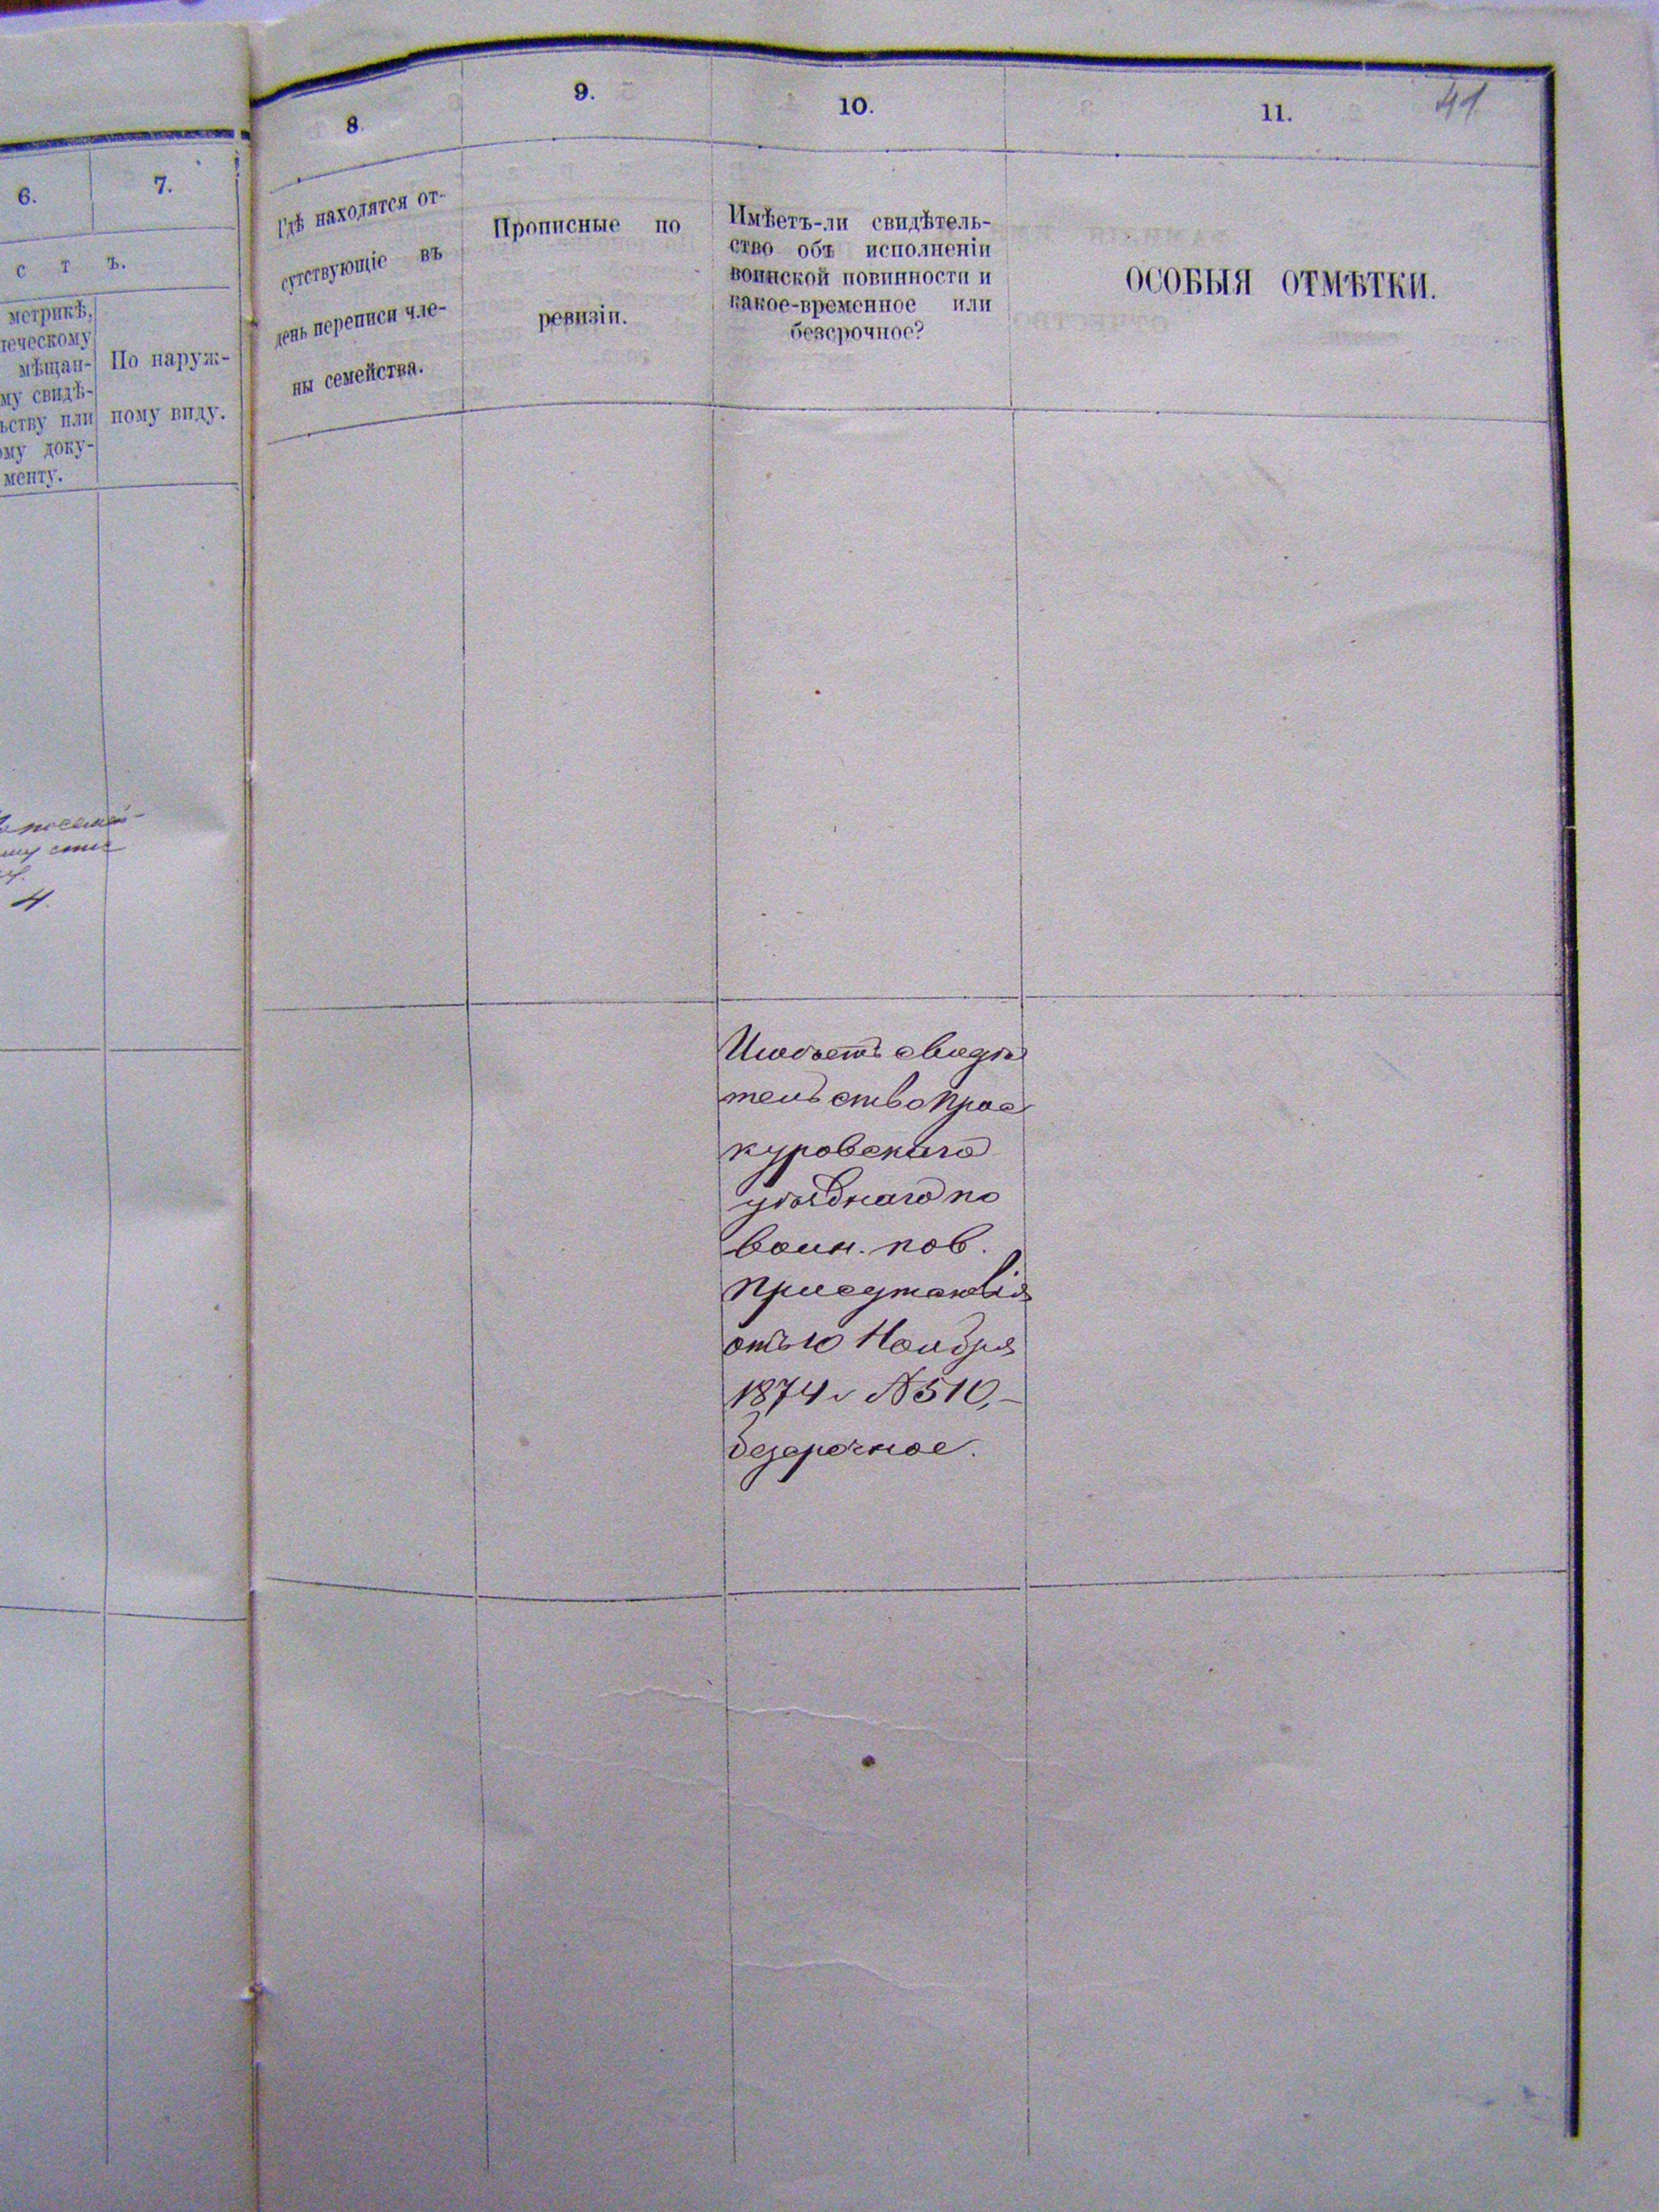 41
6.
7.
с т ъ.
метрикѣ,
ческому
мѣщан-
му свидѣ-
ьству или
ому доку-
менту.
По наруж-
ному виду.
посемей-
му спис
4.
8.
9.
10.
11.
Гдѣ находятся от-
сутствующіе въ
день переписи чле-
ны семейства.
Прописные по
ревизіи.
Имѣетъ-ли свидѣтель-
ство объ исполненіи
воинской повинности и
какое-временное или
безсрочное?
ОСОБЫЯ ОТМѢТКИ.
Имѣетъ свидѣ
тельство Прос
куровскаго
уѣзднаго по
воин. пов.
присутствія
отъ 10 Ноября
1874 г №510,-
безсрочное.